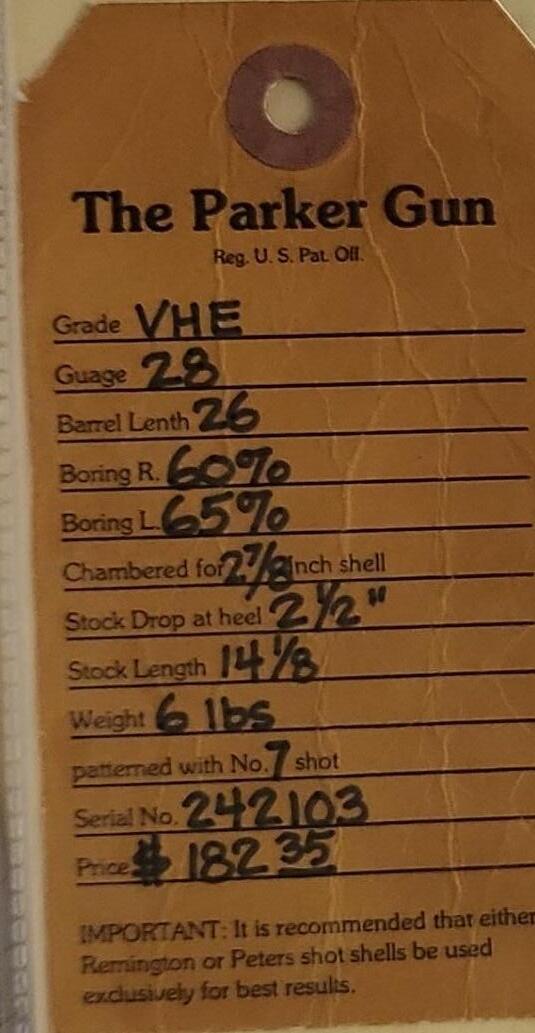 The Parker Gun
Reg. U. S. Pat. Off.
Grade VHE
Guage 28
Barrel Lenth 26
Boring R. 60%
Boring L. 65%
Chambered for 2 7/8 inch shell
Stock Drop at heel 2 1/2"
Stock Length 14 1/8
Weight 6 lbs
patterned with No. 7 shot
Serial No. 242103
Price $ 182 35
IMPORTANT: It is recommended that either
Remington or Peters shot shells be used
exclusively for best results.